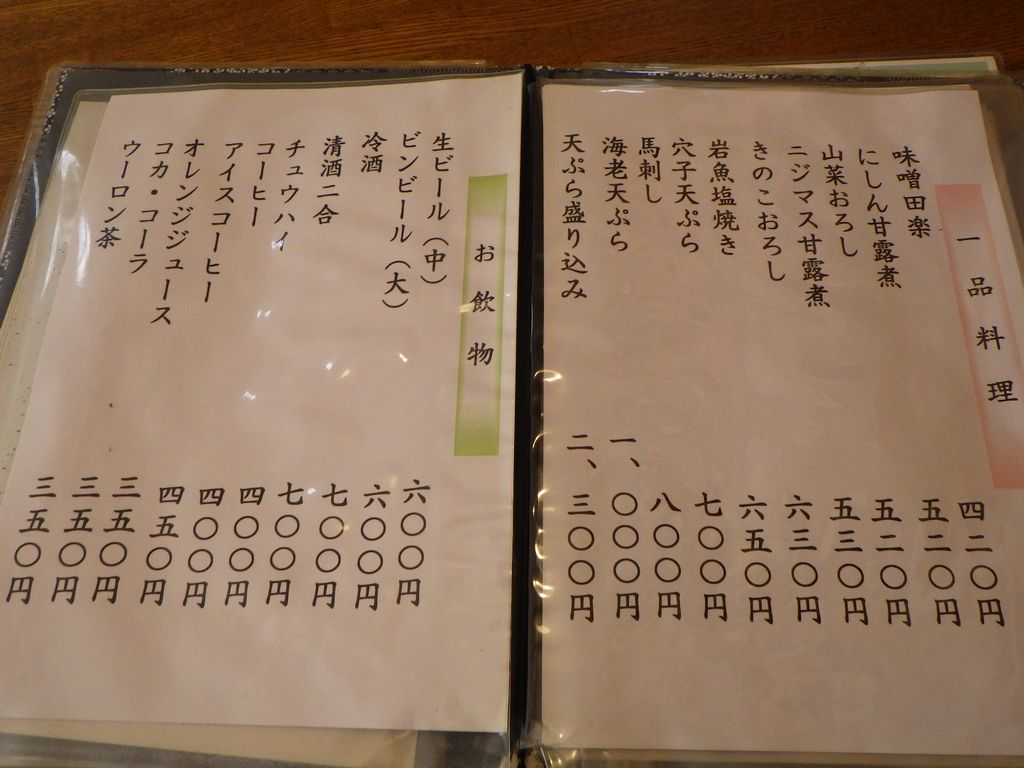 一品料理
味噌田楽 四二〇円
にしん甘露煮 五二〇円
山菜おろし 五二〇円
ニジマス甘露煮 五三〇円
きのこおろし 六三〇円
岩魚塩焼き 六五〇円
穴子天ぷら 七〇〇円
馬刺し 八〇〇円
海老天ぷら 一、〇〇〇円
天ぷら盛り込み 二、三〇〇円
お飲物
生ビール（中） 六〇〇円
ビンビール（大） 六〇〇円
冷酒 七〇〇円
清酒二合 七〇〇円
チュウハイ 四〇〇円
コーヒー 四〇〇円
アイスコーヒー 四五〇円
オレンジジュース 三五〇円
コカ・コーラ 三五〇円
ウーロン茶 三五〇円